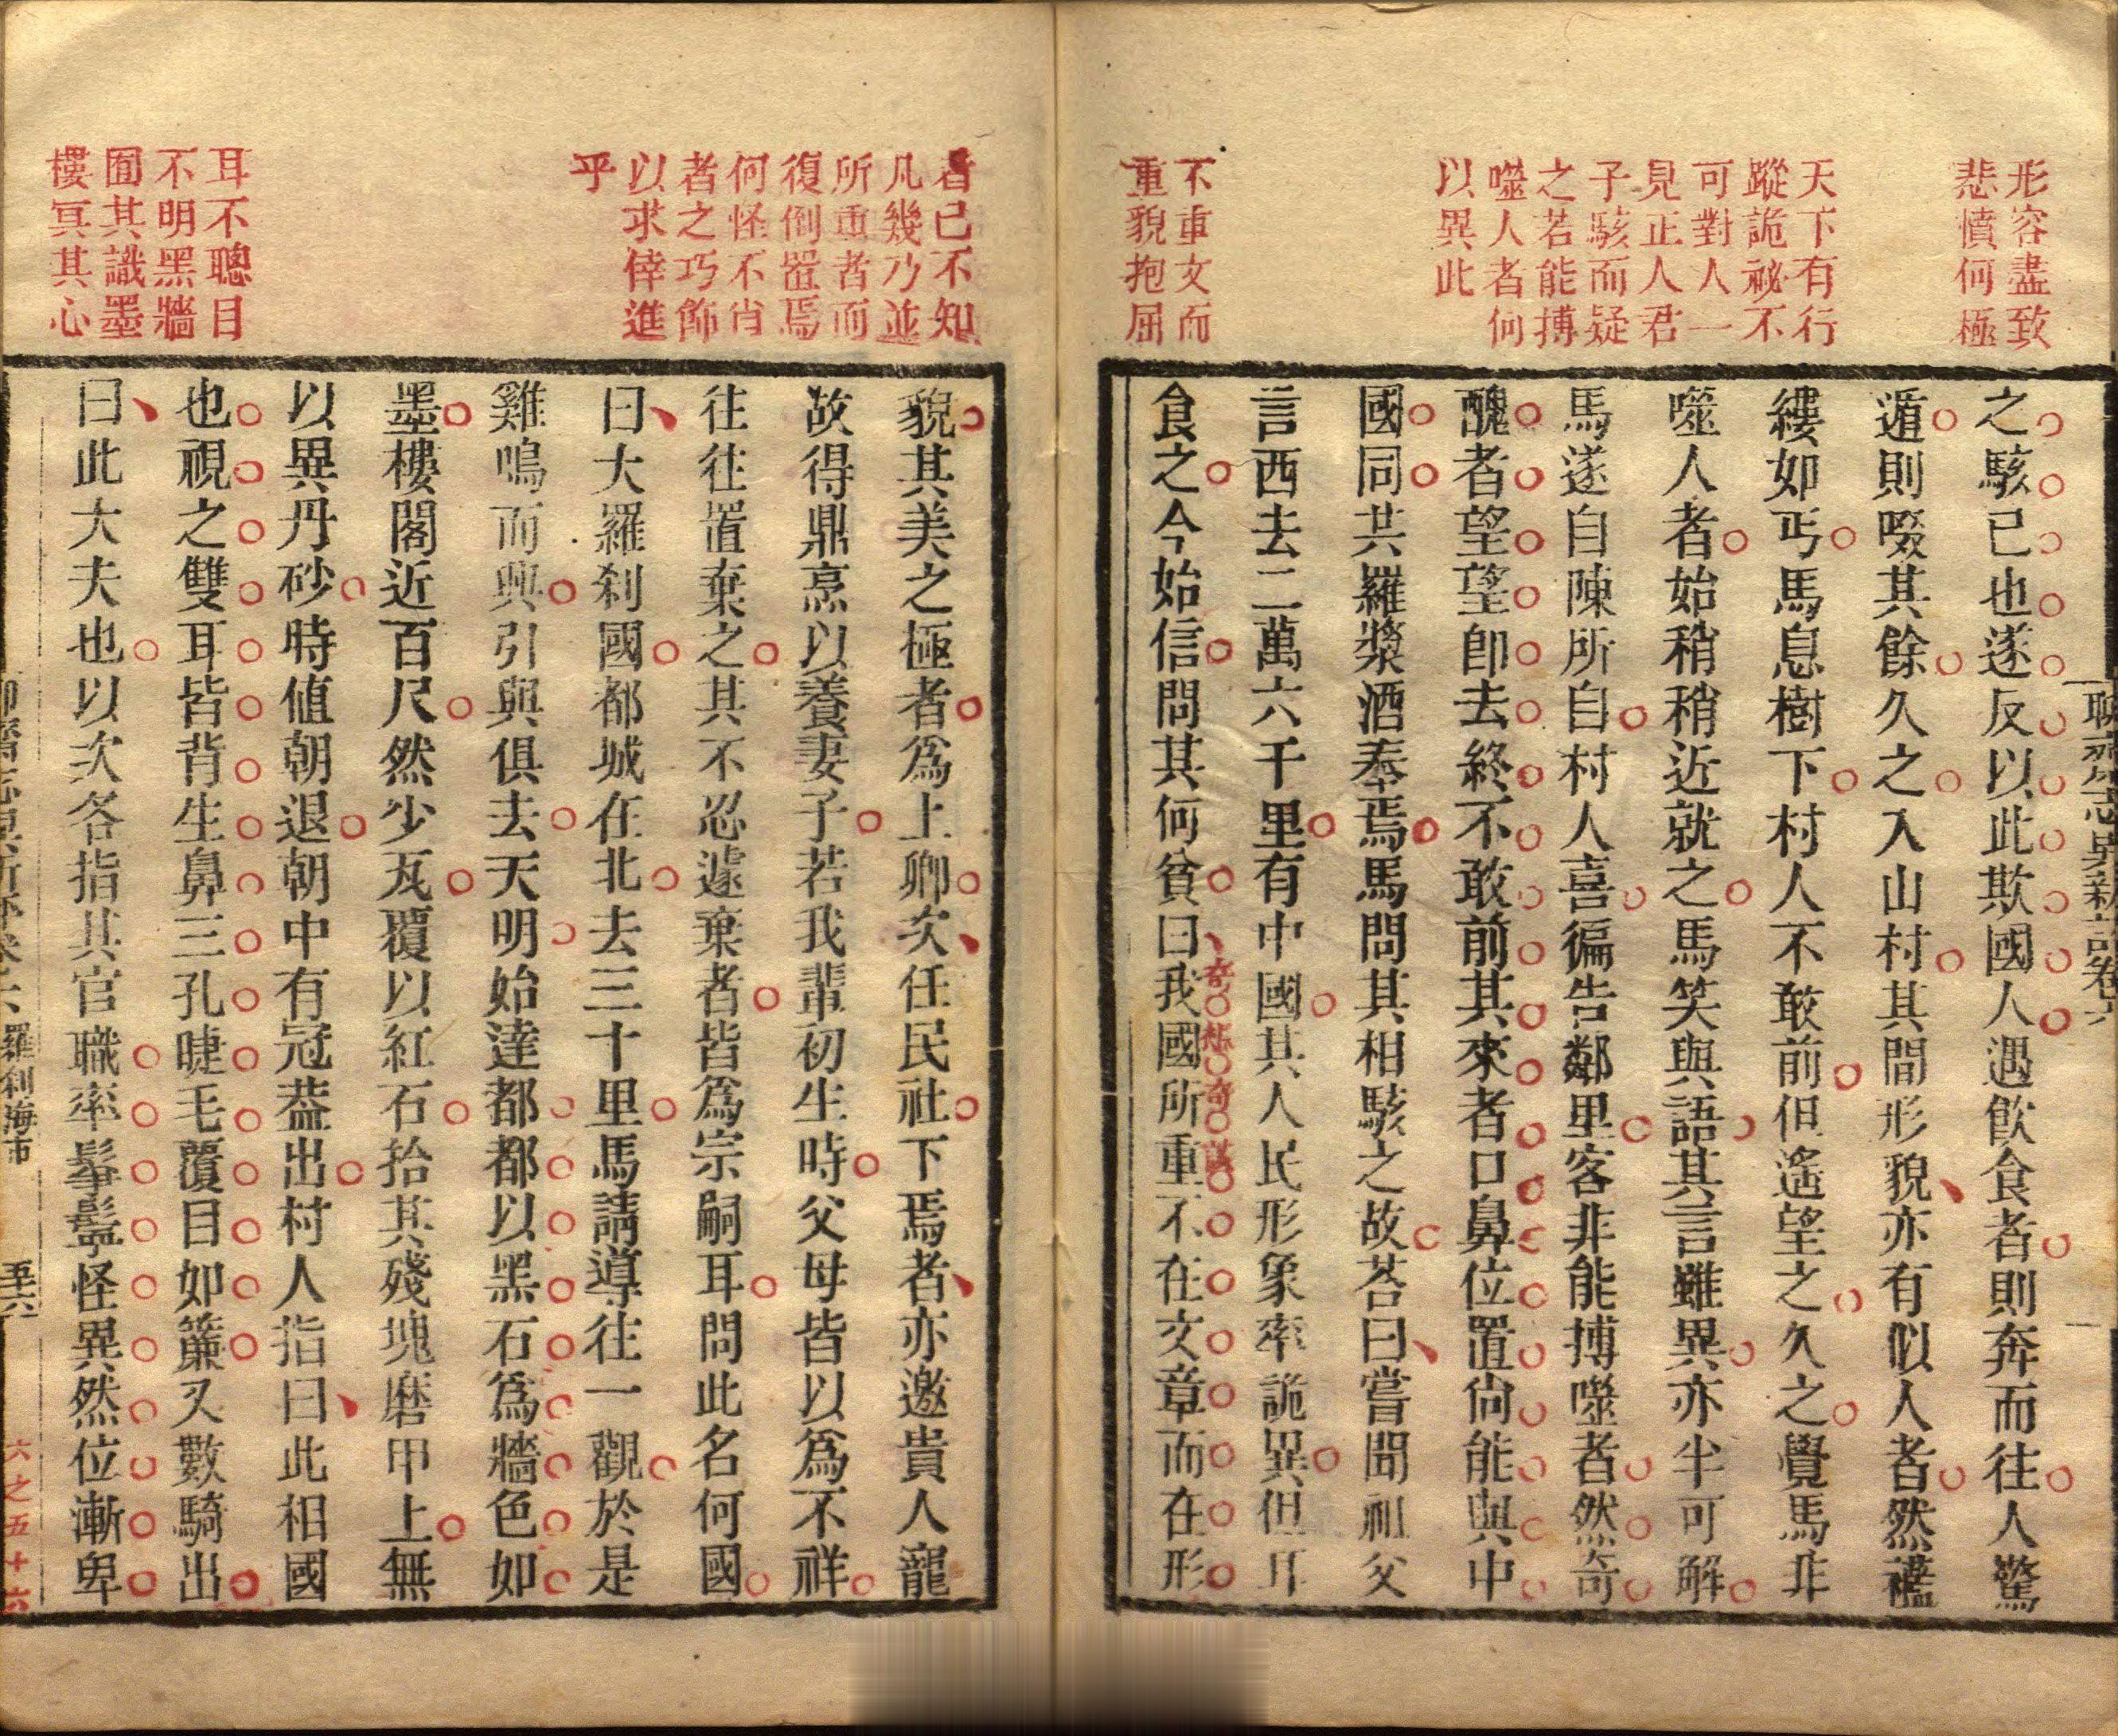 形容盡致
悲憤何極
天下有行
蹤詭祕不
可對人一
見正人君
子駭而疑
之若能搏
噬人者何
以異此
不重文而
重貌抱屈
之駭已也遂反以此欺國人遇飲食者則奔而往人驚
遁則啜其餘久之入山村其間形貌亦有似人者然襤
縷如丐馬息樹下村人不敢前但遙望之久之覺馬非
噬人者始稍稍近就之馬笑與語其言雖異亦半可解
馬遂自陳所自村人喜徧告鄰里客非能搏噬者然奇
醜者望望卽去終不敢前其來者口鼻位置尙能與中
國同共羅漿酒奉焉馬問其相駭之故荅曰嘗聞祖父
言西去二萬六千里有中國其人民形象率詭異但耳
食之今始信問其何貧曰我國所重不在文章而在形
奇想奇談
者已不知
凡幾乃並
所重者而
復倒置焉
何怪不肖
者之巧飾
以求倖進
乎
耳不聰目
不明黑牆
囿其識墨
樓冥其心
貌其美之極者爲上卿次任民社下焉者亦邀貴人寵
故得鼎烹以養妻子若我輩初生時父母皆以爲不祥
往往置棄之其不忍遽棄者皆爲宗嗣耳問此名何國
曰大羅刹國都城在北去三十里馬請導往一觀於是
雞鳴而興引與俱去天明始達都都以黑石爲牆色如
墨樓閣近百尺然少瓦覆以紅石拾其殘塊磨甲上無
以異丹砂時値朝退朝中有冠葢出村人指曰此相國
也視之雙耳皆背生鼻三孔睫毛覆目如簾又數騎出
曰此大夫也以次各指其官職率鬇鬡怪異然位漸卑
聊齋志異新評卷六
羅刹海市
五十六
六之五十六